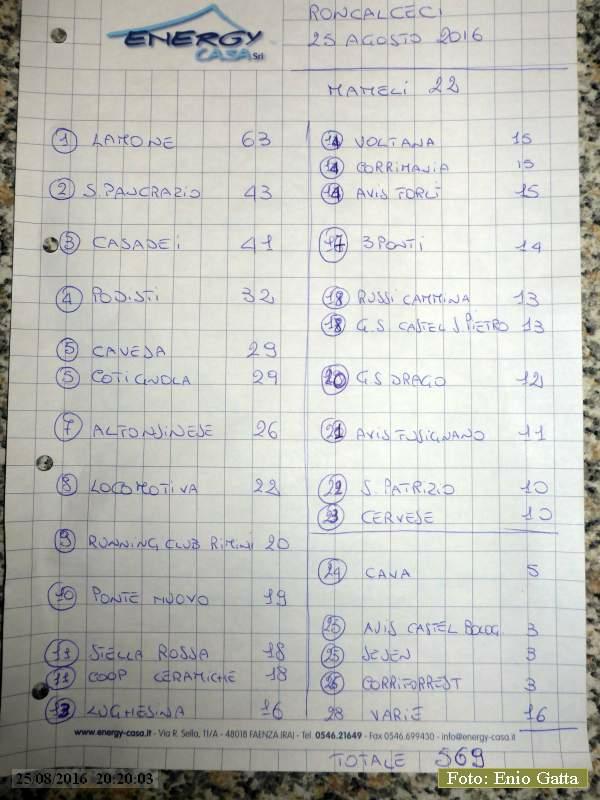 ENERGY
CASA Srl
RONCALCECI
25 AGOSTO 2016
MAMELI 22
1 LAMONE 63
2 S. PANCRAZIO 43
3 CASADEI 41
4 PODISTI 32
5 CAVEJA 29
5 COTIGNOLA 29
7 ALFONSINESE 26
8 LOCOMOTIVA 22
9 RUNNING CLUB RIMINI 20
10 PONTE NUOVO 19
11 STELLA ROSSA 18
11 COOP CERAMICHE 18
13 LUGHESINA 16
14 VOLTANA 15
14 CORRIMANIA 15
14 AVIS FORLÌ 15
17 3 PONTI 14
18 RUSSI CAMMINA 13
18 G.S. CASTEL S PIETRO 13
20 G.S DRAGO 12
21 AVIS FUSIGNANO 11
22 S. PATRIZIO 10
CERVESE 10
24 CAVA 5
25 AVIS CASTEL BOLOG. 3
25 SEVEN 3
CORRIFORREST 3
28 VARIE 16
www.energy-casa.it - Via R. Sella, 11/A - 48018 FAENZA (RA) - Tel 0546.21649 - Fax 0546.699430 - info@energy-casa.it
TOTALE 569
25/08/2016 20:20:03
Foto: Enio Gatta